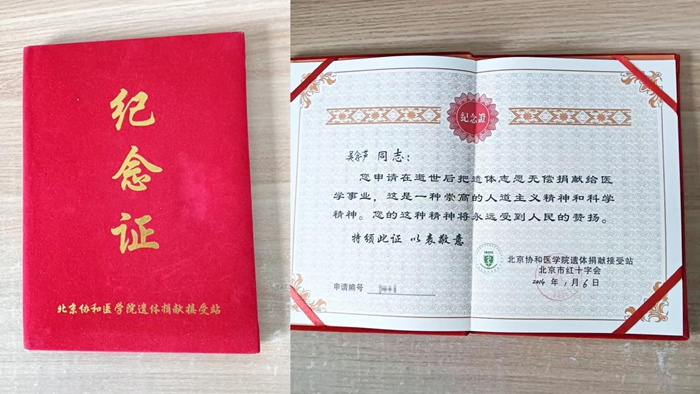 纪
念
证
北京协和医学院遗体捐献接受站
纪念證
同志：
您申请在逝世后把遗体志愿无偿捐献给医
学事业，这是一种崇高的人道主义精神和科学
精神。您的这种精神将永远受到人民的赞扬。
特颁此证 以表敬意
北京协和医学院遗体捐献接受站
北京市红十字会
申请编号
2014 年 1 月 6 日